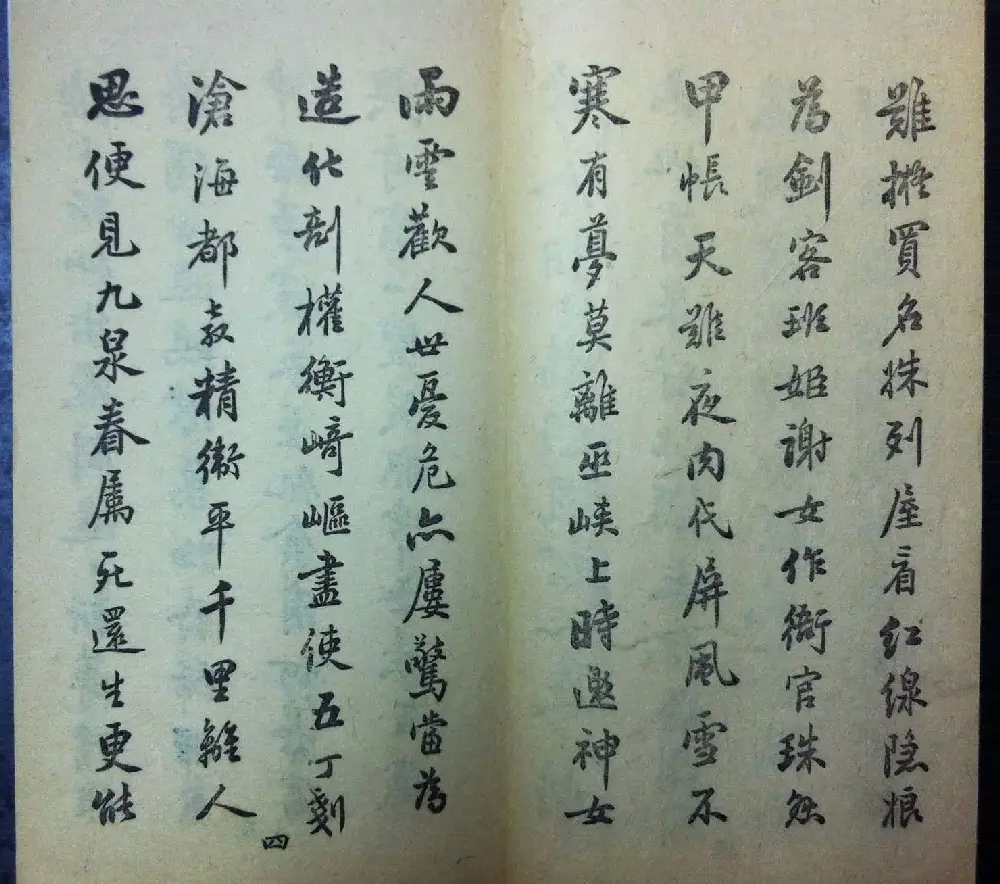 難買名姝列屋看红線隐娘
為劍客班姬謝女作衙官珠懸
甲帳天難夜肉代屏風雪不
寒有夢莫離巫峽上時邀神女
雨雲歡人世憂危亦屢驚當為
造化剖權衡崎嶇盡使五丁剗
滄海都教精衞平千里離人
思便見九泉眷屬死還生更能
四